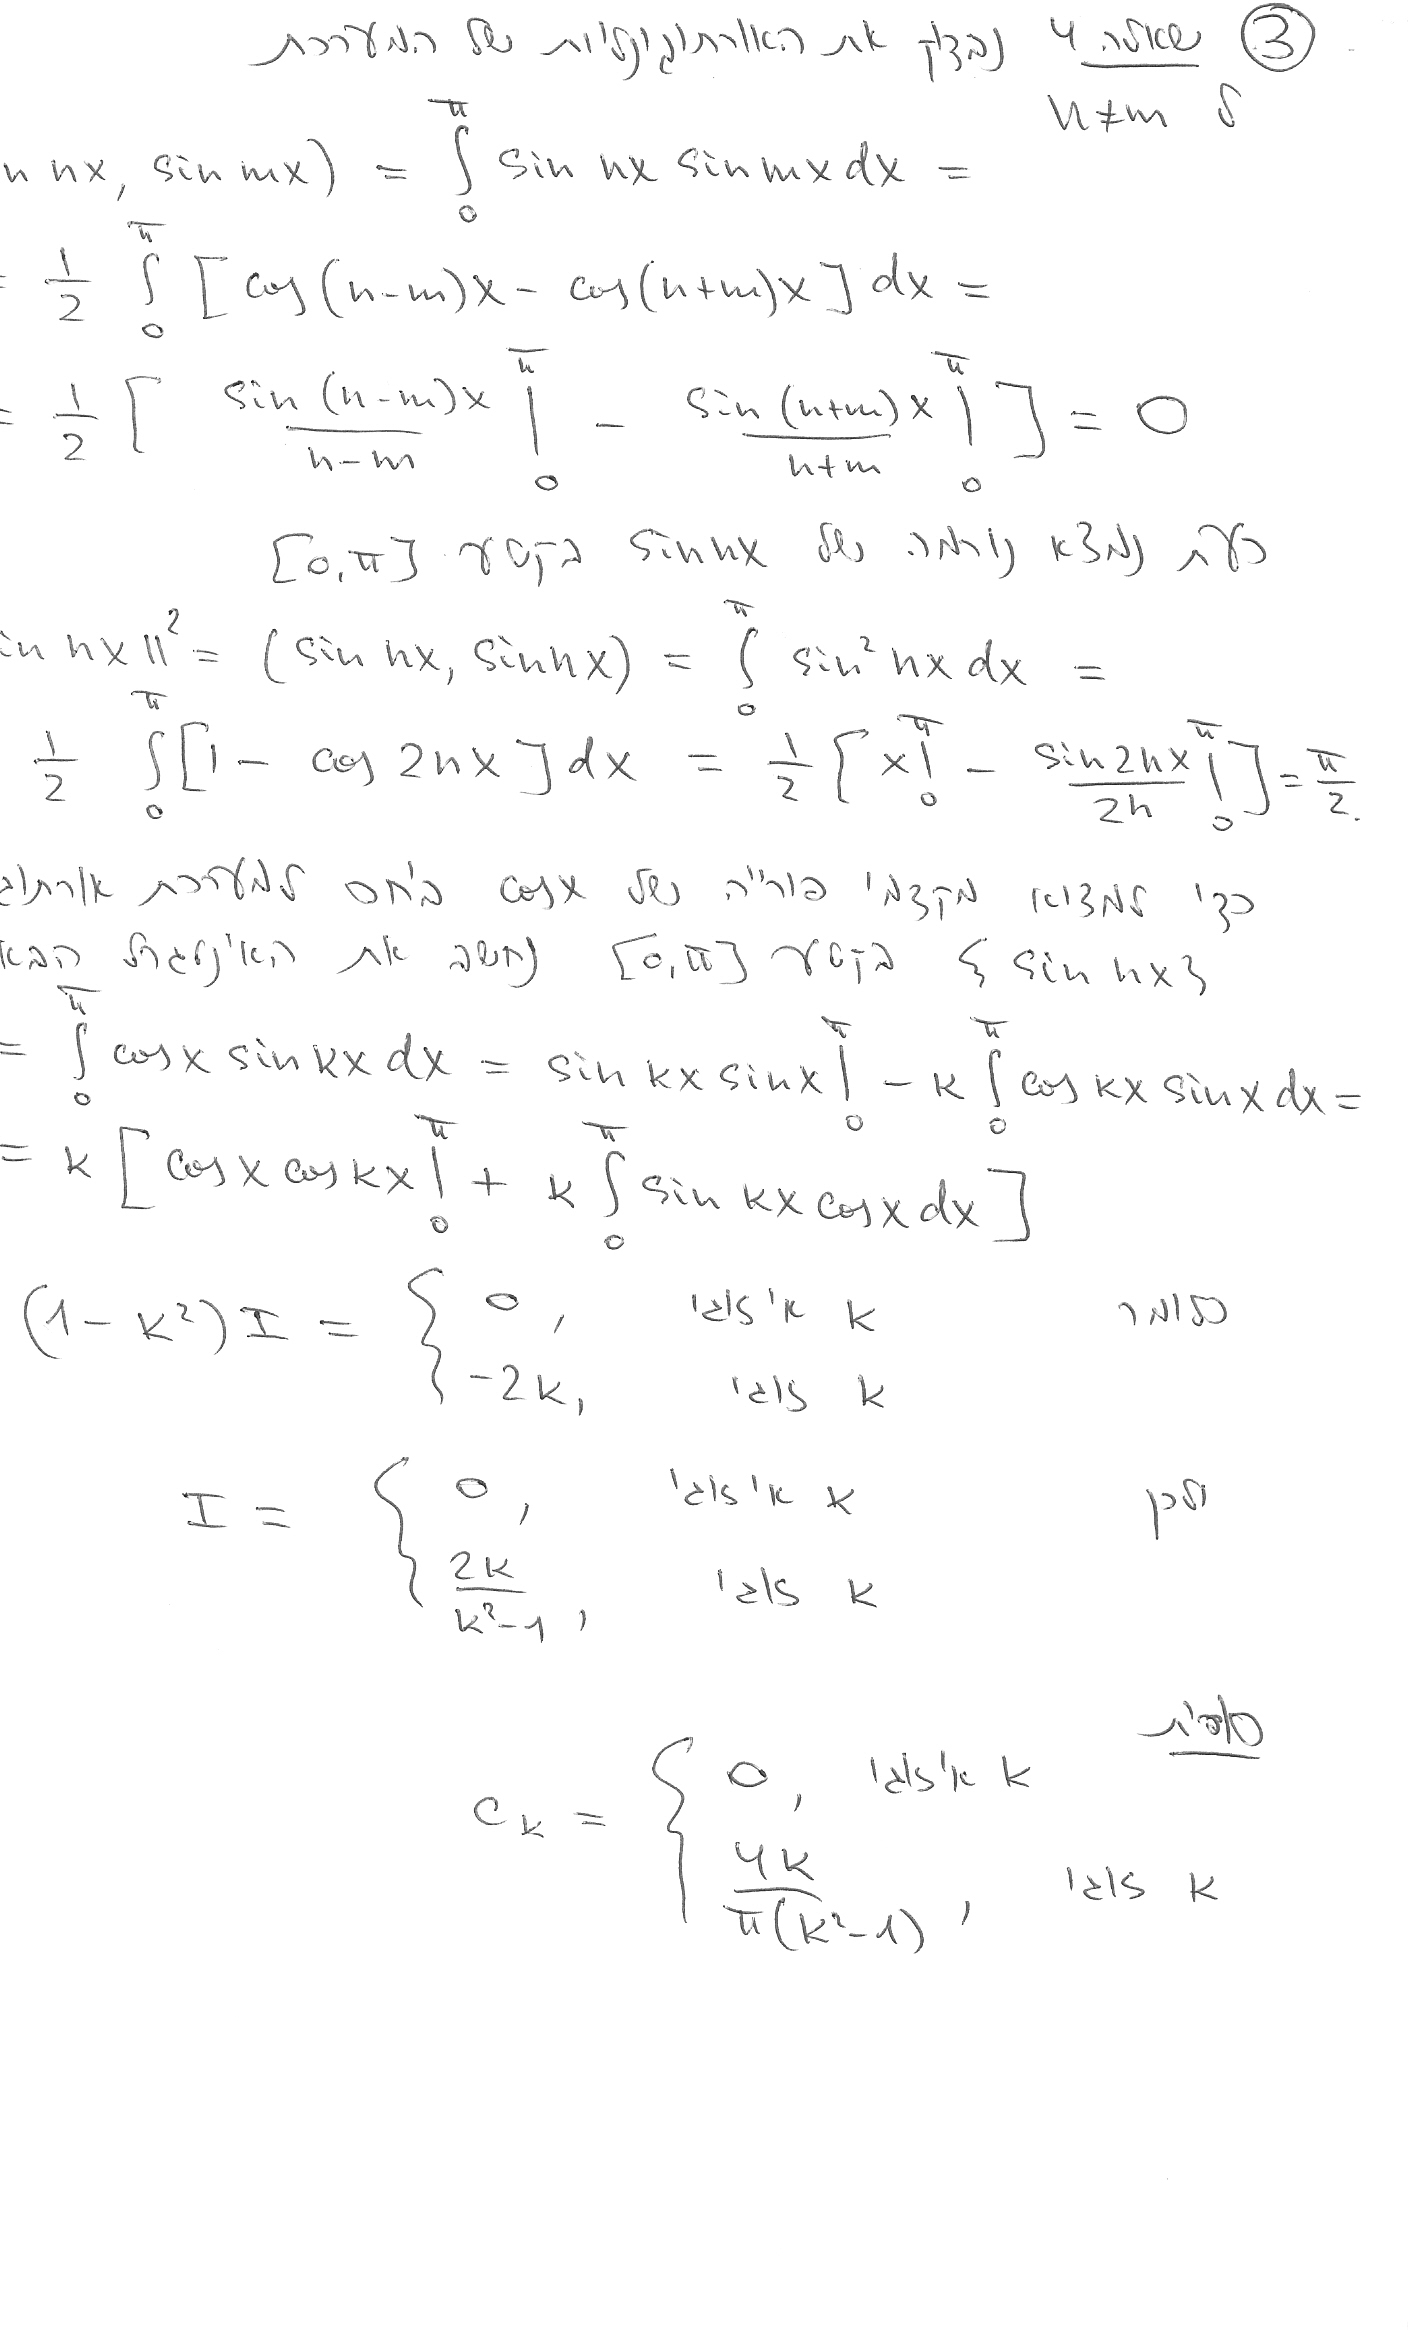 ③ שאלה 4 נבדוק את האורתוגונליות של המערכת
ל n≠m
n nx, sin mx) = ∫₀^π sin nx sin mx dx =
= 1/2 ∫₀^π [cos(n-m)x - cos(n+m)x] dx =
= 1/2 [ sin(n-m)x/(n-m) |₀^π - sin(n+m)x/(n+m) |₀^π ] = 0
כעת נמצא נורמה של sin nx בקטע [0,π]
in nx||² = (sin nx, sin nx) = ∫₀^π sin² nx dx =
1/2 ∫₀^π [1 - cos 2nx] dx = 1/2 [x|₀^π - sin 2nx/2n |₀^π] = π/2.
כדי למצוא מקדמי פורייה של cos x ביחס למערכת אורתוג
{sin nx} בקטע [0,π] נחשב את האינטגרל הבא
= ∫₀^π cos x sin kx dx = sin kx sin x|₀^π - k ∫₀^π cos kx sin x dx =
= k [cos x cos kx|₀^π + k ∫₀^π sin kx cos x dx]
כלומר (1-k²) I = { 0, k אי זוגי
-2k, k זוגי
ולכן I = { 0, k אי זוגי
2k/(k²-1), k זוגי
סופית
c_k = { 0, k אי זוגי
4k/(π(k²-1)), k זוגי